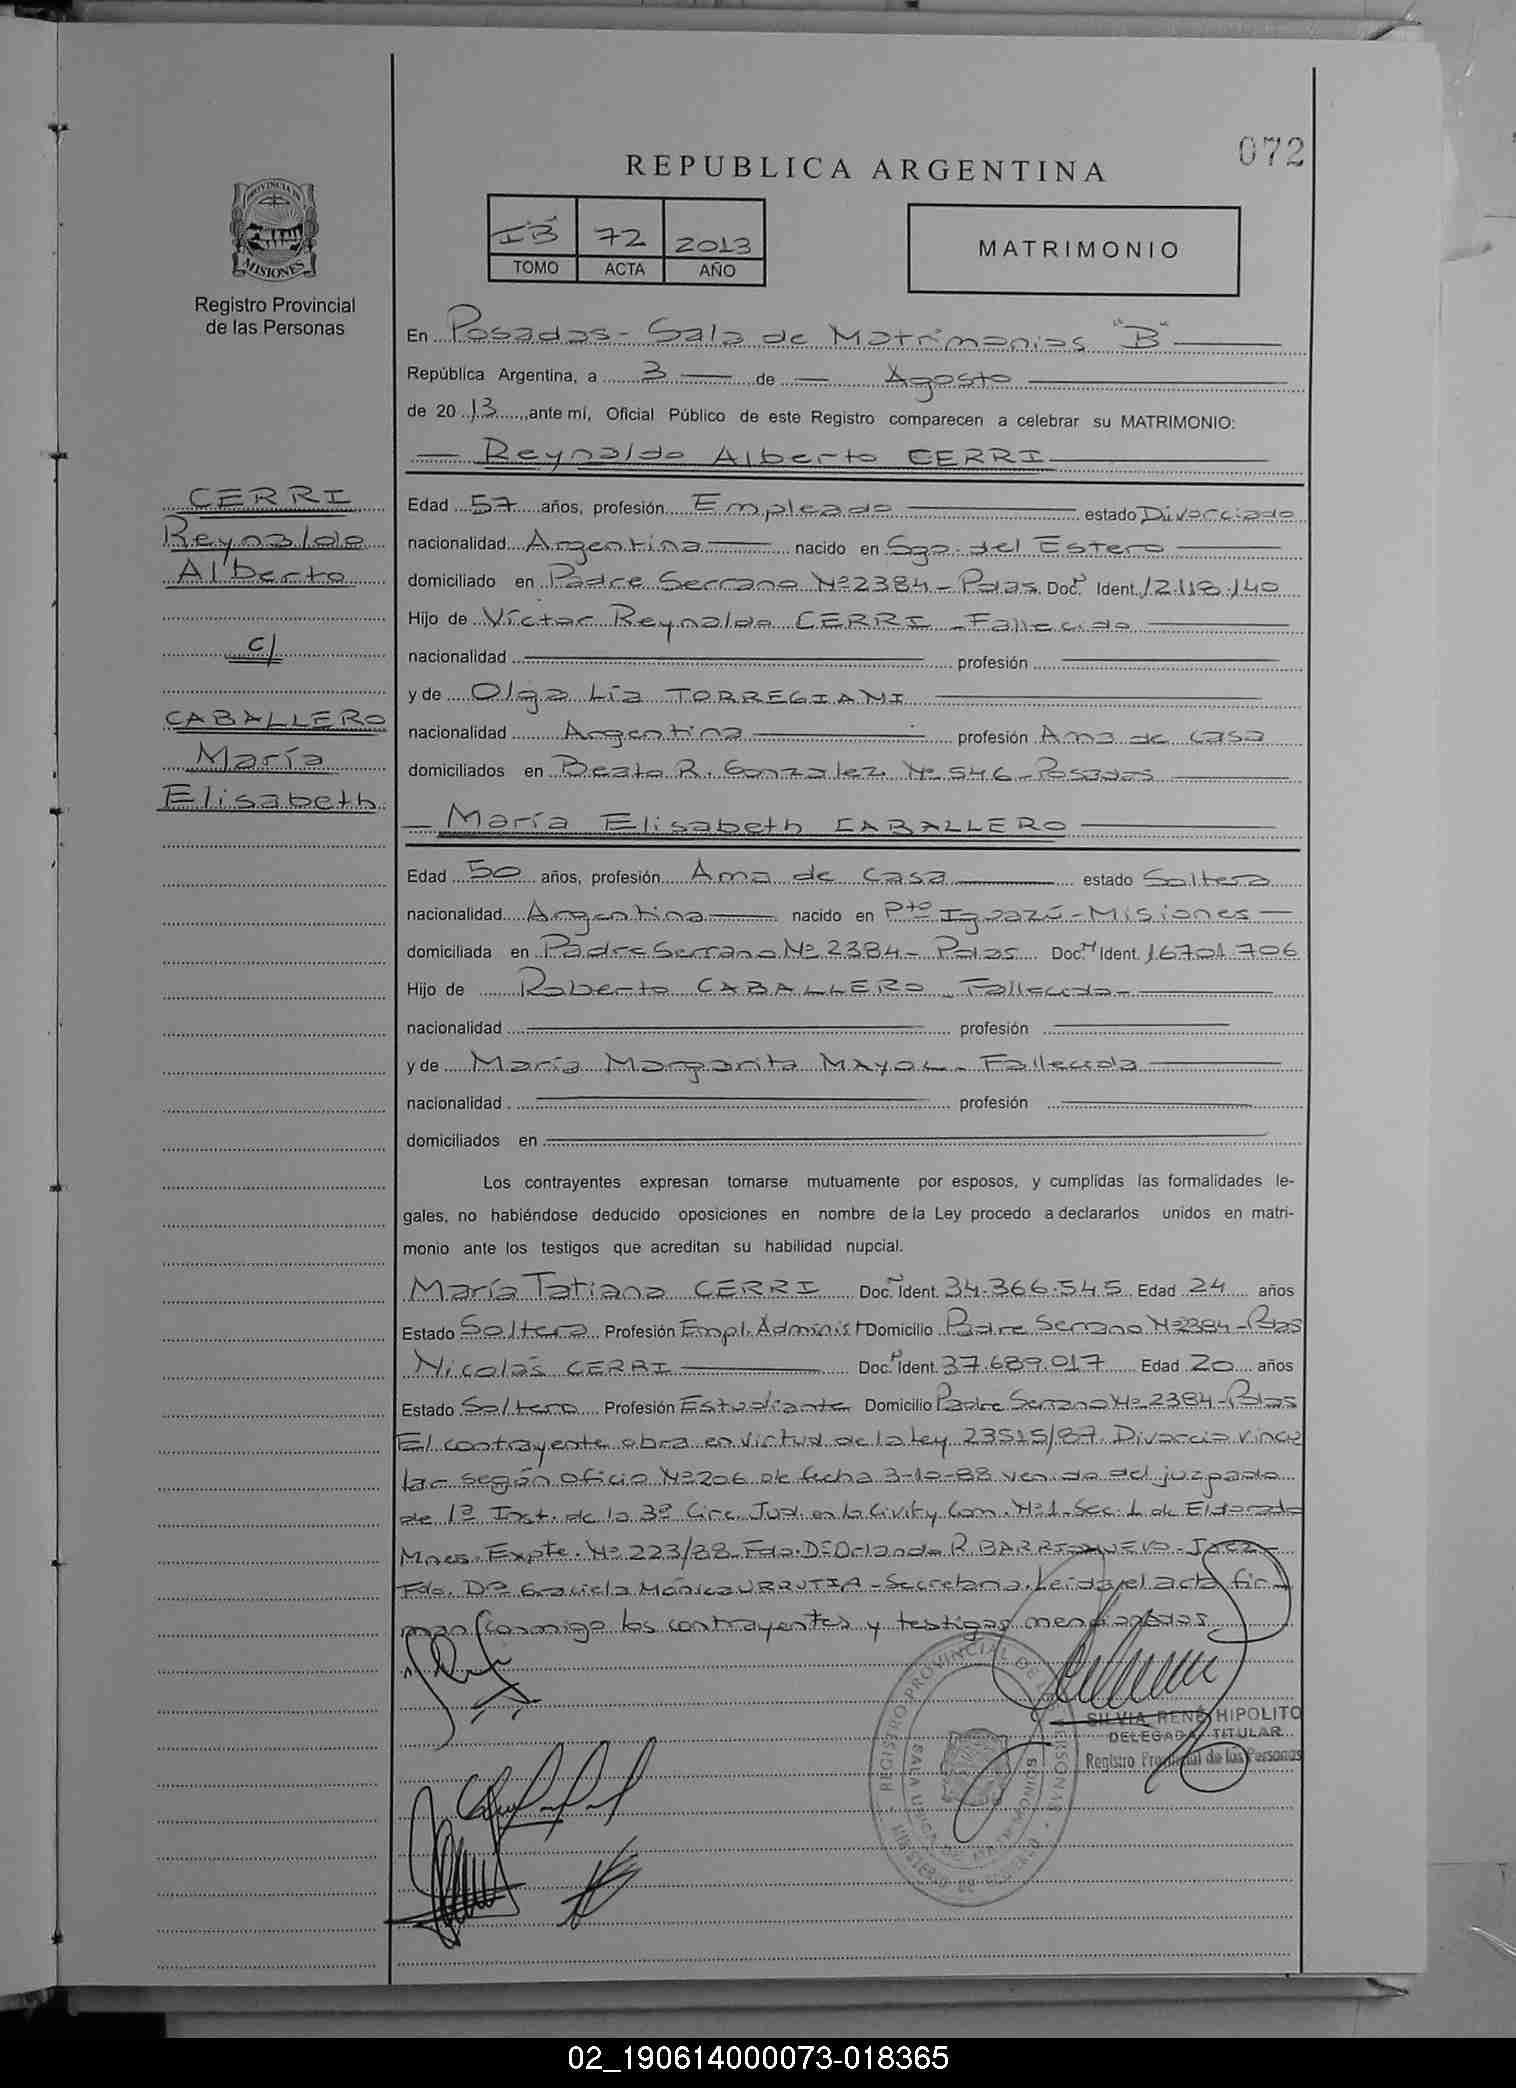 072
REPUBLICA ARGENTINA
PROVINCIA DE
MISIONES
Registro Provincial
de las Personas
I"B" 72 2013
TOMO ACTA AÑO
MATRIMONIO
En Posadas - Sala de Matrimonios "B"
República Argentina, a 3 de Agosto
de 20 13 ante mí, Oficial Público de este Registro comparecen a celebrar su MATRIMONIO:
Reynaldo Alberto CERRI
CERRI
Reynaldo
Alberto
c/
CABALLERO
María
Elisabeth
Edad 57 años, profesión Empleado estado Divorciado
nacionalidad Argentina nacido en Sgo. del Estero
domiciliado en Padre Serrano Nº 2384 - Pdas. Doc. Ident. 12.118.140
Hijo de Víctor Reynaldo CERRI - Fallecido
nacionalidad profesión
y de Olga Lía TORREGIANI
nacionalidad Argentina profesión Ama de casa
domiciliados en Beato R. Gonzalez Nº 546 - Posadas
María Elisabeth CABALLERO
Edad 50 años, profesión Ama de casa estado Soltera
nacionalidad Argentina nacido en Pto Iguazú - Misiones
domiciliada en Padre Serrano Nº 2384 - Pdas Doc. Ident. 16.701.706
Hijo de Roberto CABALLERO - Fallecido
nacionalidad profesión
y de María Margarita MAYOL - Fallecida
nacionalidad profesión
domiciliados en
Los contrayentes expresan tomarse mutuamente por esposos, y cumplidas las formalidades le-
gales, no habiéndose deducido oposiciones en nombre de la Ley procedo a declararlos unidos en matri-
monio ante los testigos que acreditan su habilidad nupcial.
María Tatiana CERRI Doc. Ident. 34.366.545 Edad 24 años
Estado Soltera Profesión Empl. Administ Domicilio Padre Serrano Nº 2384 - Pdas
Nicolás CERRI Doc. Ident. 37.689.017 Edad 20 años
Estado Soltero Profesión Estudiante Domicilio Padre Serrano Nº 2384 - Pdas
El contrayente obra en virtud de la ley 23515/87. Divorcio vincu
lar según Oficio Nº 206 de fecha 3-10-88 venido del juzgado
de 1ª Inst. de la 3ª Circ. Jud. en lo Civil y Com. Nº 1 - Sec. 1 de Eldorado
Mnes. Expte. Nº 223/88 - Fdo. Dr. Orlando R. BARRIONUEVO - Juez -
Fdo. Dra. Graciela Mónica URRUTIA - Secretaria. Leída el acta fir-
man conmigo los contrayentes y testigos mencionados
REGISTRO PROVINCIAL DE LAS PERSONAS
SILVIA RENÉ HIPOLITO
DELEGADA TITULAR
Registro Provincial de las Personas
02_190614000073-018365